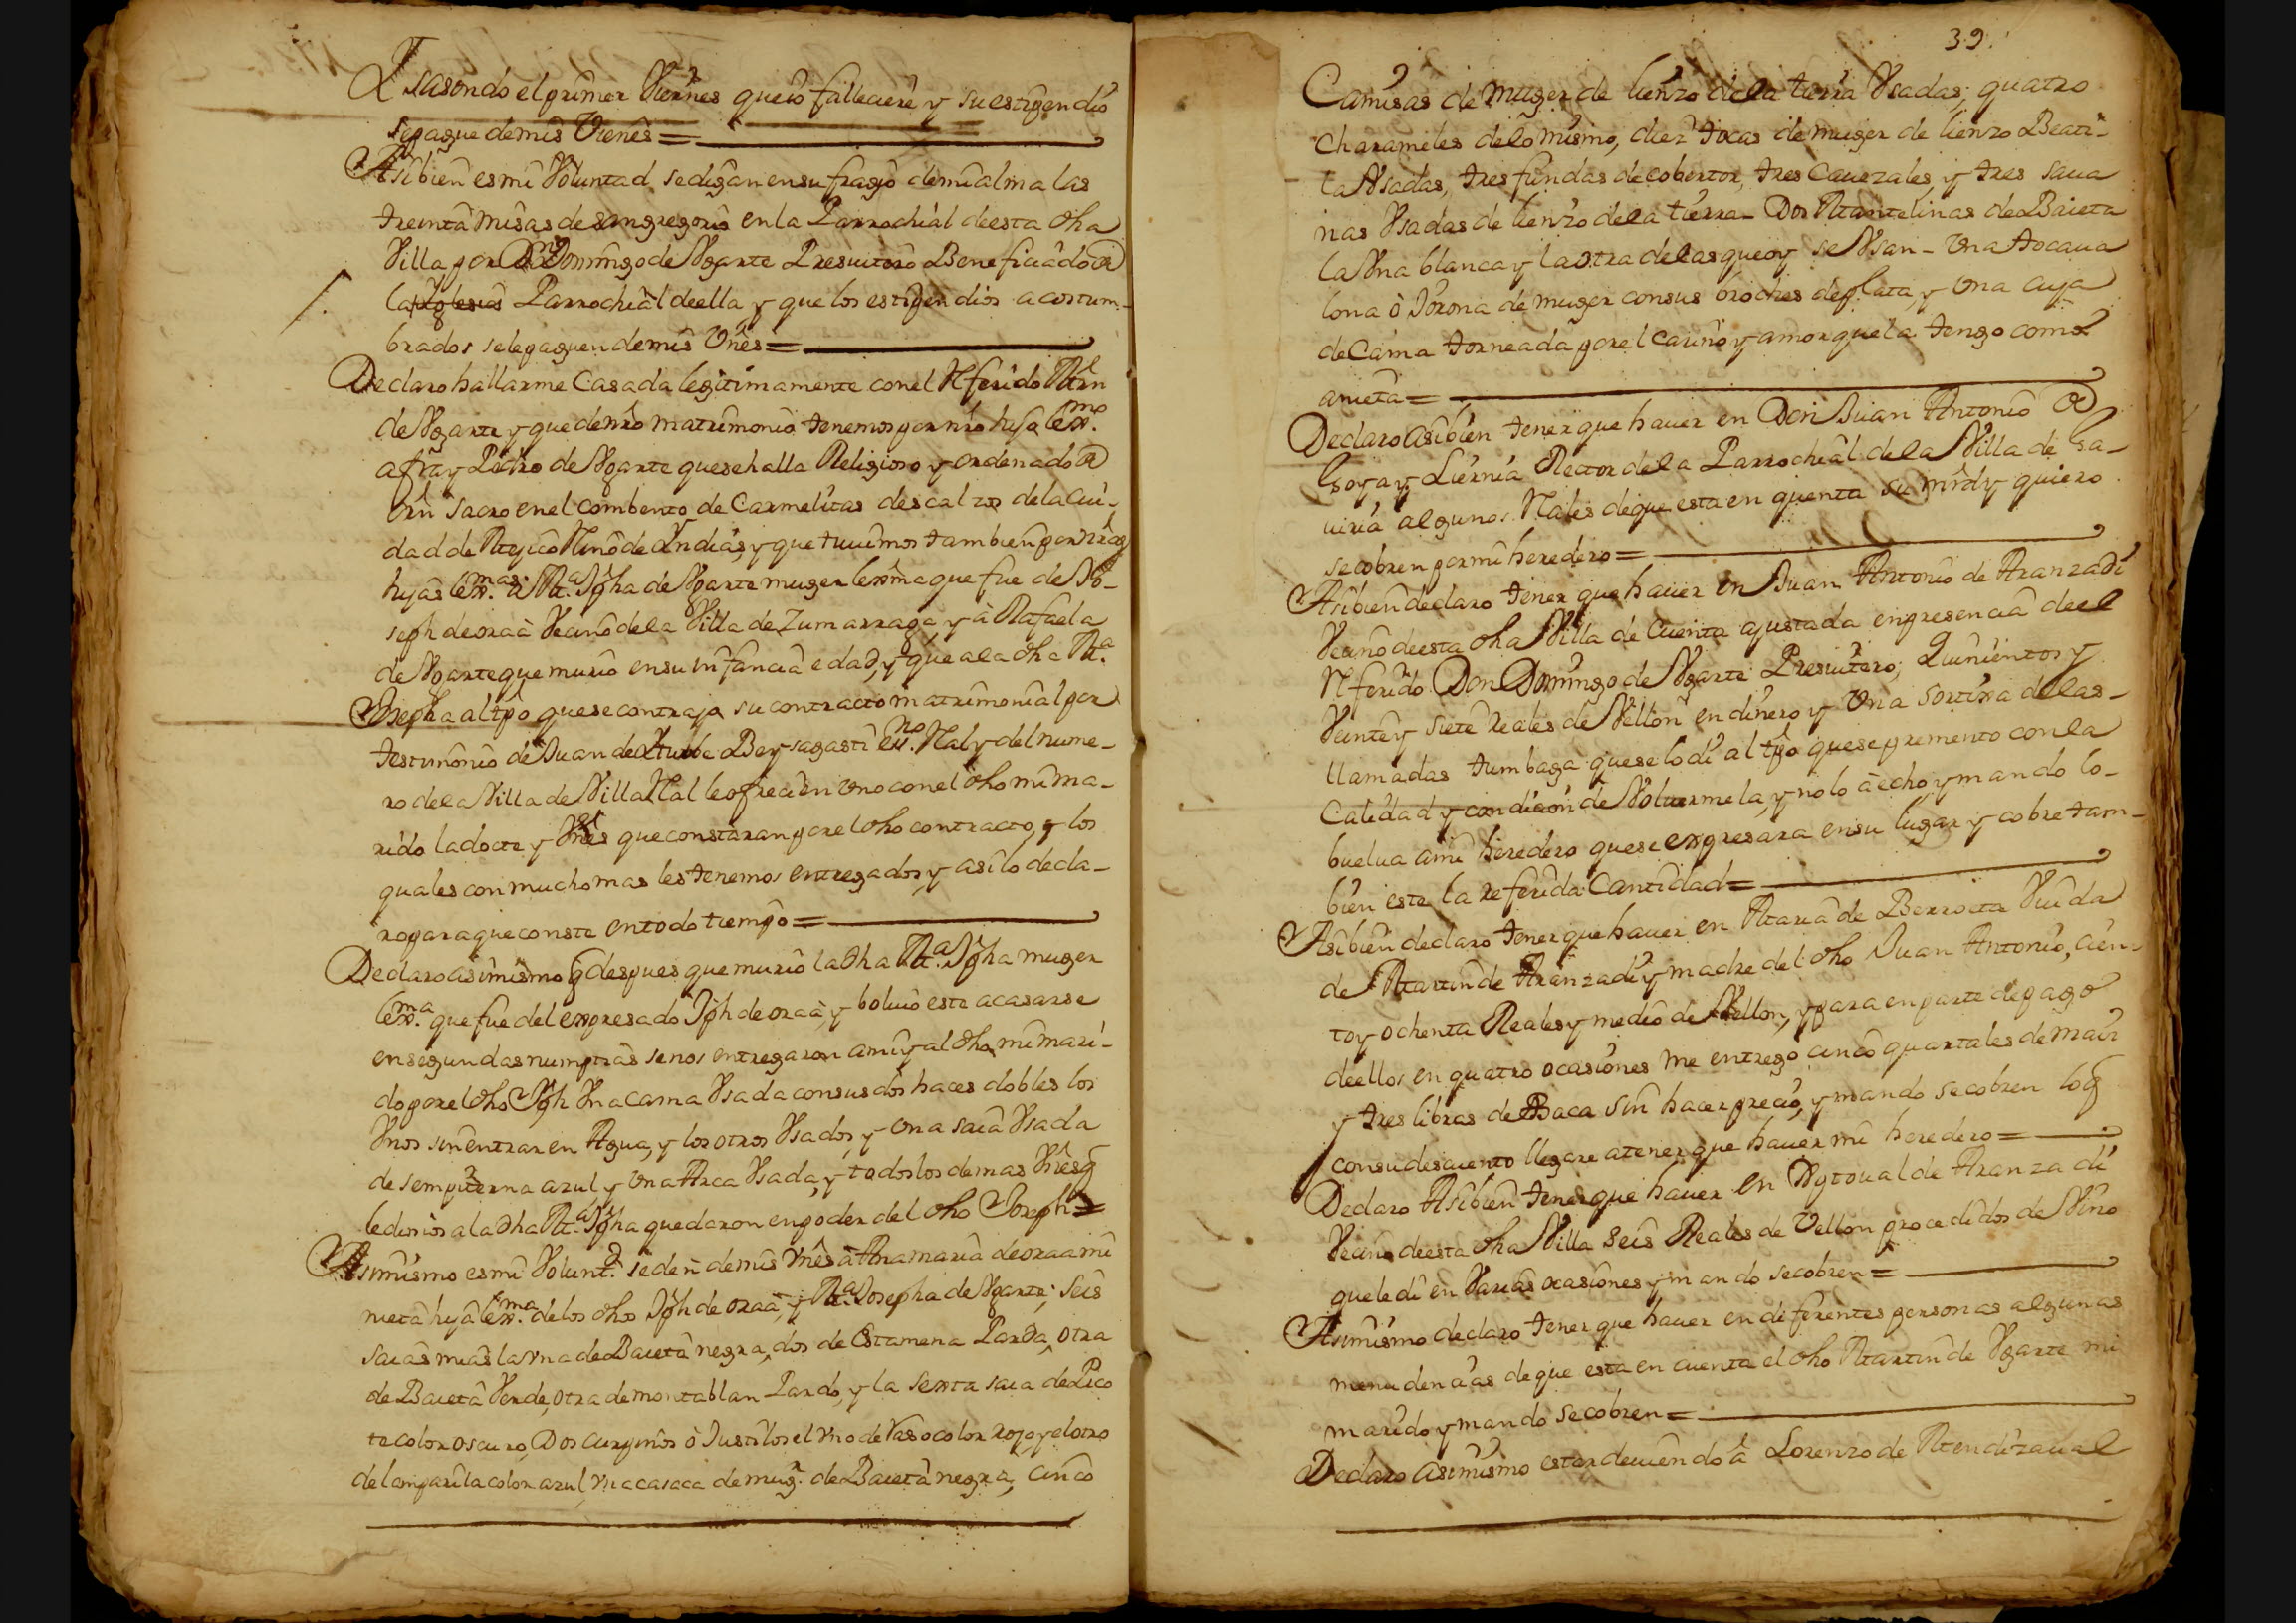 sasondo el primer Viernes que io falleciere y su estipendio
se pague de mis Vienes =
Asibien es mi Voluntad se digan en sufragio de mi alma las
treinta misas de san gregorio en la Parrochial de esta dha
Villa por Dn Domingo de Vgarte Presvitero Beneficiado de
la Parrochial de ella y que los estipendios acostum-
brados se le paguen de mis Vnes =
Declaro hallarme Casada legitimamente con el Rferido Mrn
de Vgarte y que de nro matrimonio tenemos por nro hijo lexmo.
a fray Pedro de Vgarte que se halla Religioso y ordenado de
orn sacro en el combento de Carmelitas descalzos de la Ciu-
dad de Mejico Rno de Indias, y que tuuimos tambien por nras
hijas lexmas. a Ma. Jpha de Vgarte muger lexma que fue de Jo-
seph de oraa Vecino de la Villa de Zumarraga y à Rafaela
de Vgarte que murio en su infancia edad, y que a la dha Ma.
Josepha al tpo que se contrajo su contracto matrimonial por
testimonio de Juan de Yturbe Beysagasti esno. Ral y del nume-
ro de la Villa de Villa Ral le ofreci en vno con el dho mi ma-
rido la docte y Vnes que constaran por el dho contracto, y los
quales con mucho mas les tenemos entregados, y asi lo decla-
ro para que conste en todo tiempo =
Declaro asimismo q despues que murio la dha Ma. Jpha muger
lexma. que fue del expresado Jph de oraa, y boluio este a casarse
en segundas numptias se nos entregaron a mi y al dho mi mari-
do por el dho Jph Vna cama Vsada con sus dos haces dobles los
Vnos sin entrar en Agua, y los otros Vsados, y vna saia Vsada
de sempiterna azul y vna Arca Vsada, y todos los demas Vnes q
le dimos a la dha Ma Jpha quedaron en poder del dho Joseph =
Asimismo es mi Volunt.d se den de mis Vnes à Ana maria de oraa mi
nieta hija lexma. de los dhos Jph de oraa, y Ma. Josepha de Vgarte; seis
saias mias la vna de Baieta negra, dos de Estamena Parda, otra
de Baieta Verde, otra de montablan Pardo, y la sexta saia de Pico
te color oscuro, Dos o Justillos el vno de Raso color rojo, y el otro
de lamparilla color azul, vna casaca de mugr. de Baieta negra, cinco
39.
Camisas de Muger de lienzo de la tierra Vsadas; quatro
charameles de lo mismo, diez tocas de muger de lienzo Beati-
la Vsadas, tres fundas de cobertor, tres Cauezales, y tres saua
nas Vsadas de lienzo de la tierra - Dos Mantelinas de Baieta
la Vna blanca y la otra de las que oy se Vsan - Vna
ò de muger con sus broches de plata, y vna cuja
de Cama torneada por el cariño y amor que la tengo como à
nieta =
Declaro asibien tener que hauer en Don Juan Antonio de
y Liernia Rector de la Parrochial de la Villa de Ga-
uiria algunos Rales de que esta en quenta su mrd y quiero
se cobren por mi heredero =
Asibien declaro tener que hauer en Juan Antonio de Aranzadi
Vecino de esta dha Villa de Cuenta ajustada en presencia de el
Rferido Don Domingo de Vgarte Presuitero; Quinientos y
Veinte y siete reales de Villon en dinero y Vna sortixa de las-
llamadas tumbaga que se lo di al tpo que se premento con la
Calidad y condicion de Voluermela, y no lo à echo, y mando lo-
buelua a mi heredero que se expresara en su lugar y cobre tam-
bien este la referida Cantidad =
Asibien declaro tener que hauer en Maria de Berroeta Viuda
de Martin de Aranzadi y madre del dho Juan Antonio, cien-
to y ochenta Reales y medio de Vellon, y para en parte de pago
de ellos en quatro ocasiones me entrego cinco quartales de maiz
y tres libras de Baca sin hacer precio, y mando se cobren lo q
con su descuento llegare a tener que hauer mi heredero =
Declaro Asibien tener que hauer en de Aranzadi
Vecino de esta dha Villa seis Reales de Vellon procedidos de Vino
que le di en Varias ocasiones y mando se cobren =
Asimismo declaro tener que hauer en diferentes personas algunas
menudencias de que esta en cuenta el dho Martin de Vgarte mi
marido y mando se cobren =
Declaro asimismo estar deuiendo à Lorenzo de Mendizaual